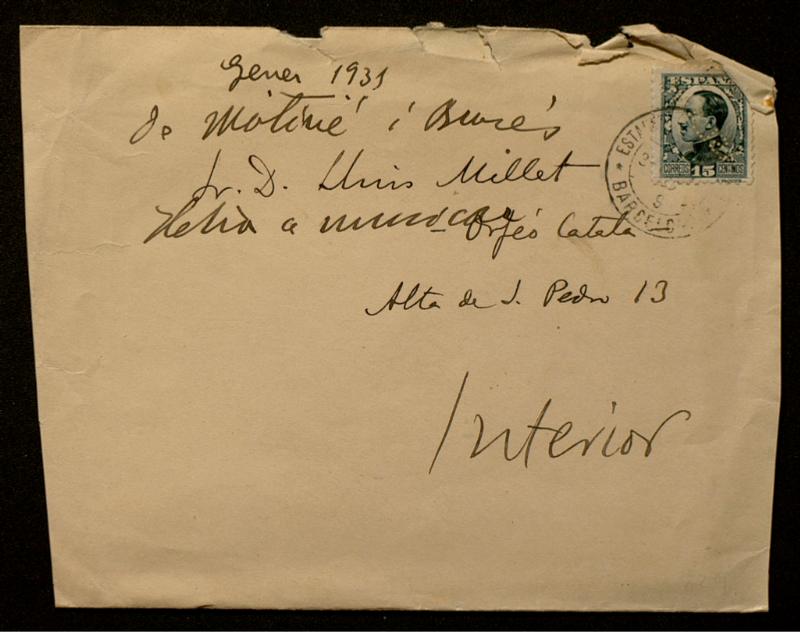 Gener 1931
de Motiné i Burés
Sr. D. Lluis Millet
Lletra a musicar
Orfeó Català
Alta de S. Pedro 13
Interior
ESPAÑA
CORREOS 15 CENTIMOS
BARCELONA